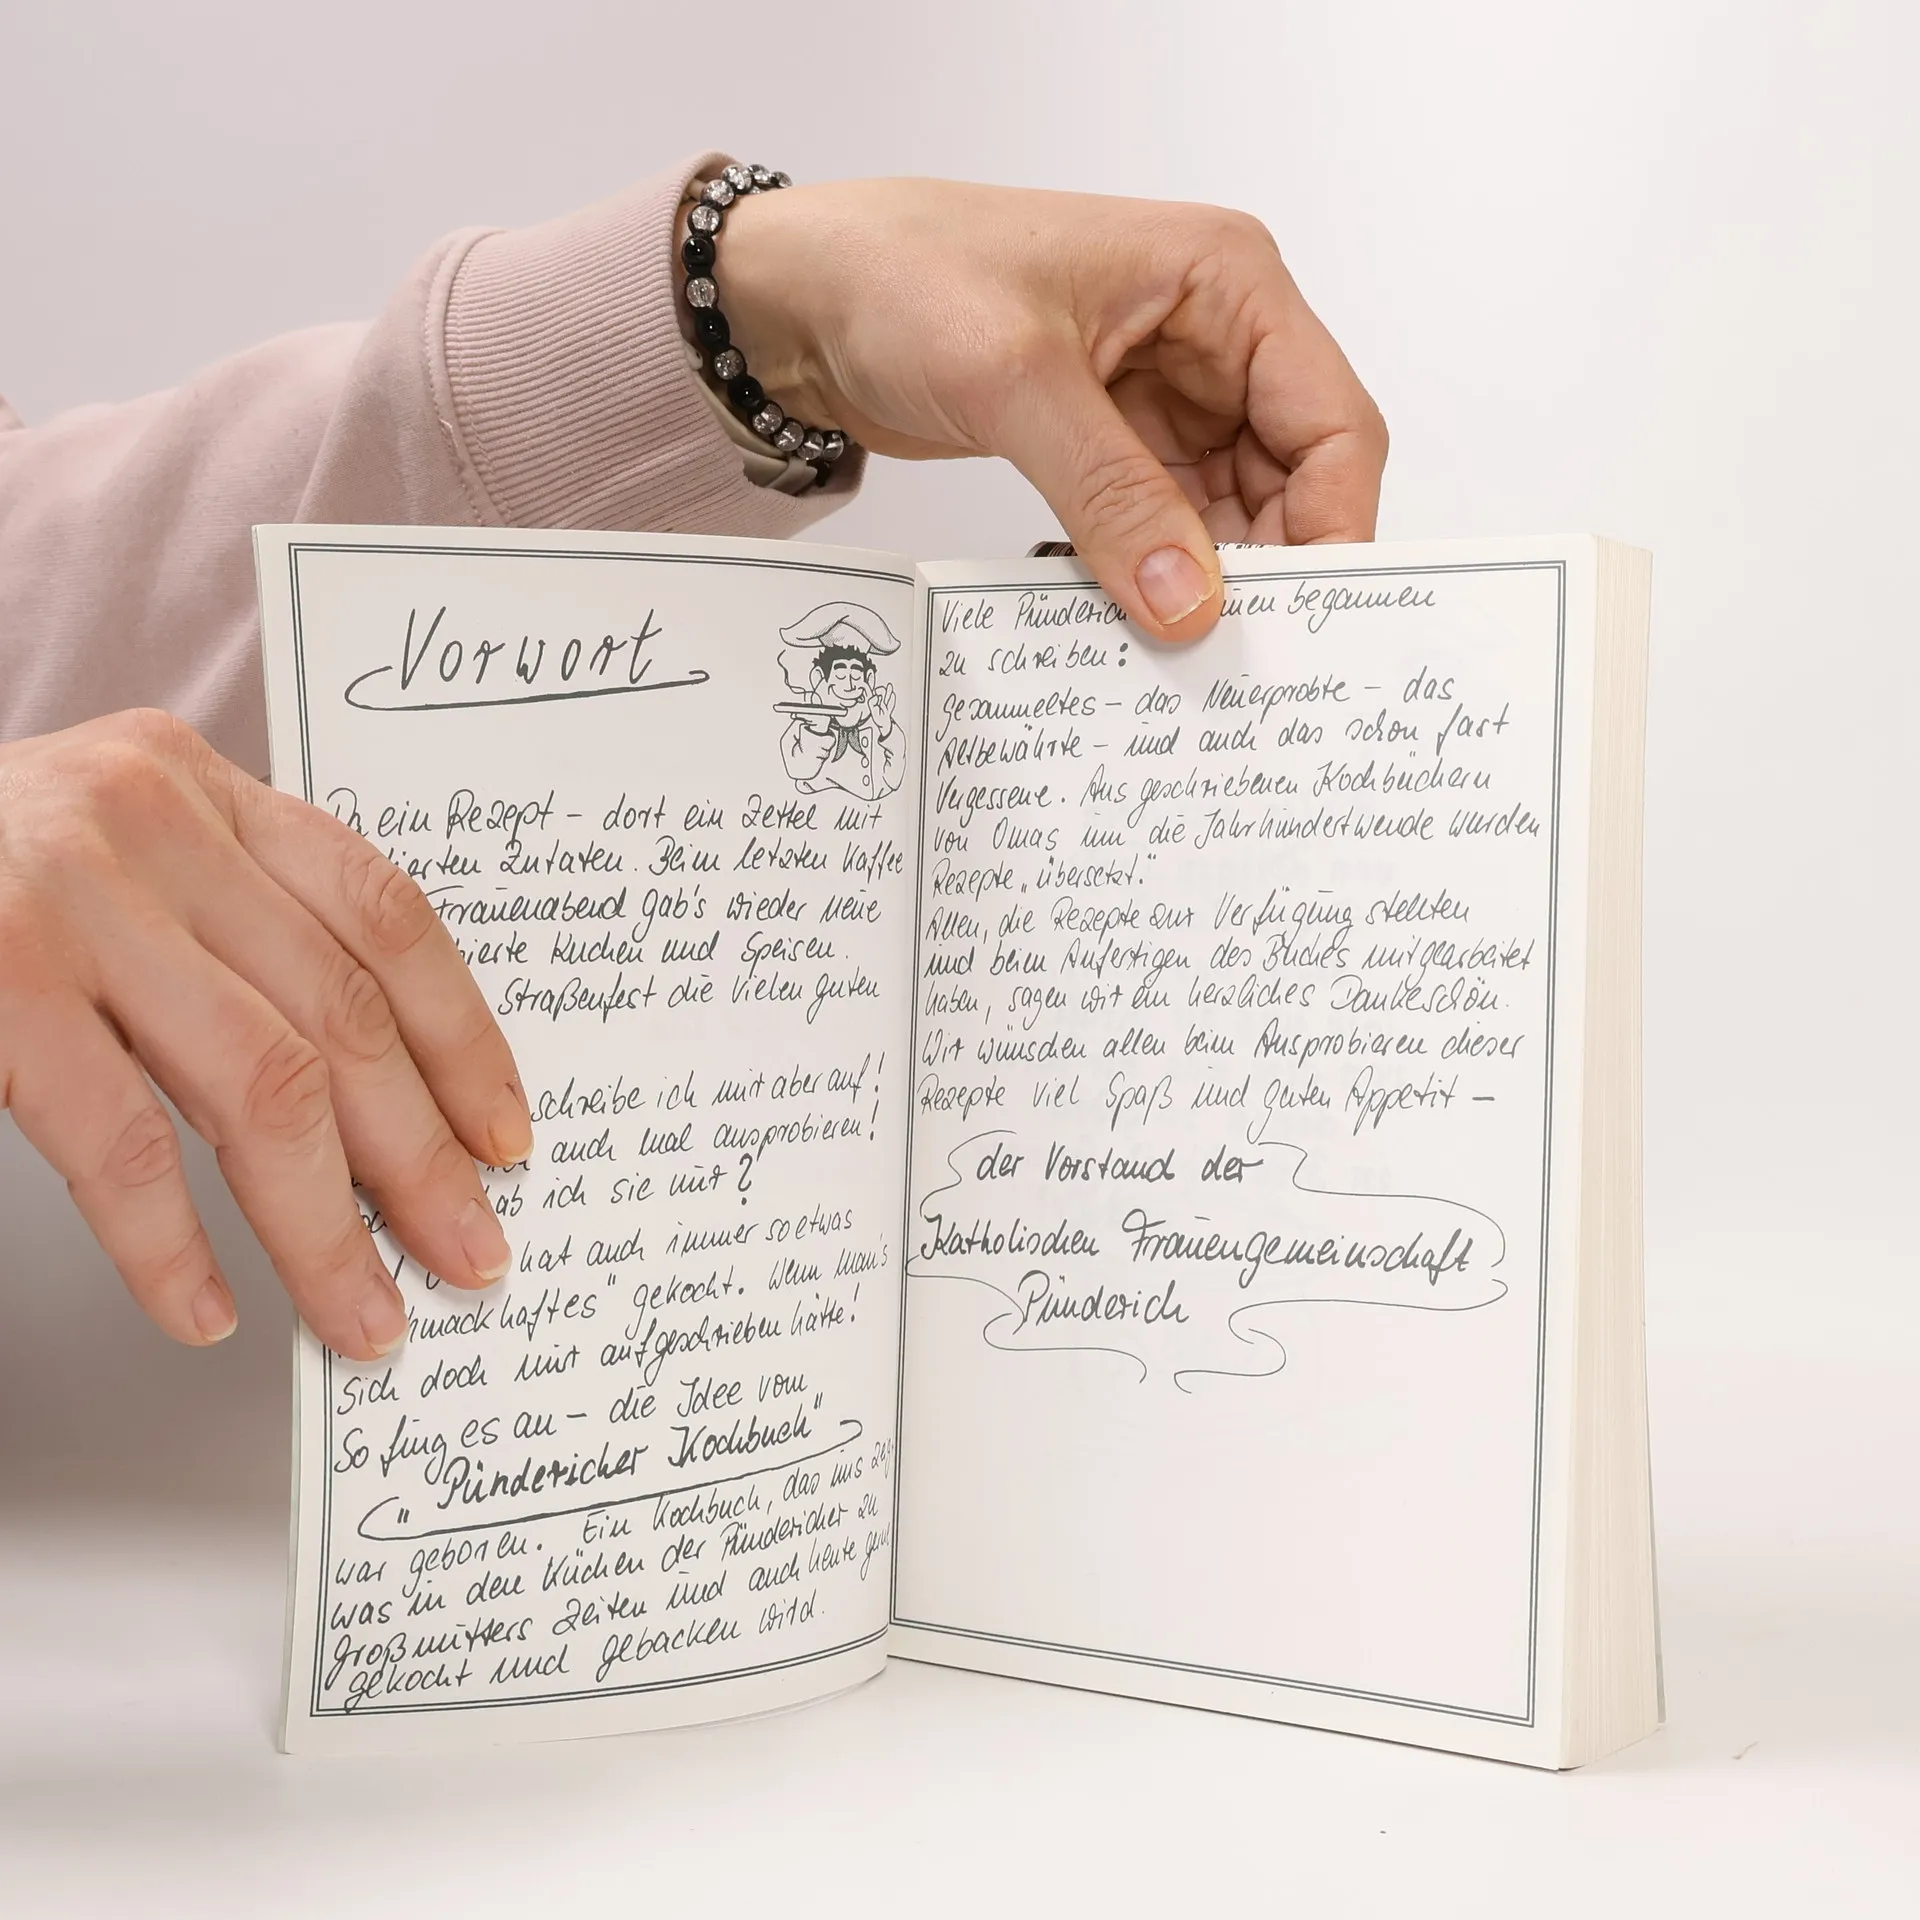 Vorwort
ein Rezept – dort ein Zettel mit
Zutaten. Beim letzten Kaffee
Frauenabend gab's wieder neue
Kuchen und Speisen.
Straßenfest die vielen guten
schreibe ich mir aber auf!
auch mal ausprobieren!
ich sie nur?
hat auch immer so etwas
gekocht. Wenn man's
sich doch nur aufgeschrieben hätte!
So fing es an – die Idee vom
"Pündericher Kochbuch"
war geboren. Ein Kochbuch, das uns
was in den Küchen der Pündericher zu
Großmutters Zeiten und auch heute
gekocht und gebacken wird.
Viele begannen
zu schreiben:
gesammeltes – das Neuerprobte – das
Altbewährte – und auch das schon fast
Vergessene. Aus geschriebenen Kochbüchern
von Omas um die Jahrhundertwende wurden
Rezepte „übersetzt."
Allen, die Rezepte zur Verfügung stellten
und beim Anfertigen des Buches mitgearbeitet
haben, sagen wir ein herzliches Dankeschön.
Wir wünschen allen beim Ausprobieren dieser
Rezepte viel Spaß und guten Appetit –
der Vorstand der
Katholischen Frauengemeinschaft
Pünderich